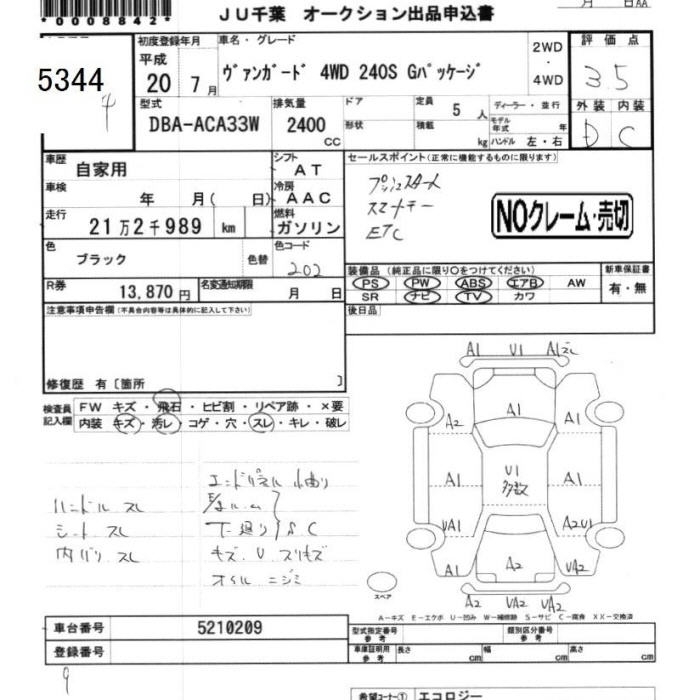 *00008842*
JU千葉 オークション出品申込書
月 日 AA
5344
初度登録年月
平成
20 7月
車名・グレード
ヴァンガード 4WD 240S Gパッケージ
2WD
・
4WD
評価点
3.5
外装 内装
D C
型式
DBA-ACA33W
排気量
2400
CC
ドア
形状
定員 5 人
積載 kg
ディーラー・並行
モデル年式 年
ハンドル 左・右
車歴
自家用
シフト
AT
車検
年 月( 日)
冷房
AAC
走行
21万2千989 km
燃料
ガソリン
色
ブラック
色替
色コード
202
R券
13,870円
名変通知期限
月 日
セールスポイント(正常に機能するものに限ります)
プッシュスタート
スマートキー
ETC
NOクレーム・売切
装備品(純正品に限り○をつけてください)
PS PW ABS エアB AW
SR ナビ TV カワ
新車保証書
有・無
後日品
注意事項申告欄(不具合内容等は具体的に記入して下さい)
修復歴 有〔箇所 〕
検査員記入欄
FW キズ・飛石・ヒビ割・リペア跡・×要
内装 キズ・汚レ・コゲ・穴・スレ・キレ・破レ
ハンドル スレ
シート スレ
内バリ スレ
エンドパネル 小曲り
下廻り S C
キズ U スリキズ
オイル ニジミ
A1 U1 A1
A2 A1
A1 U1 多数 A1
UA1 A2U1
A1 A2 UA2
A2 UA2 UA2
スペア
A-キズ E-エクボ U-凹み W-補修跡 S-サビ C-腐食 XX-交換済
車台番号
5210209
登録番号
9
型式指定番号
参考
類別区分番号
参考
車庫証明用
参考
長さ cm
幅 cm
高さ cm
希望コーナー① エコロジー